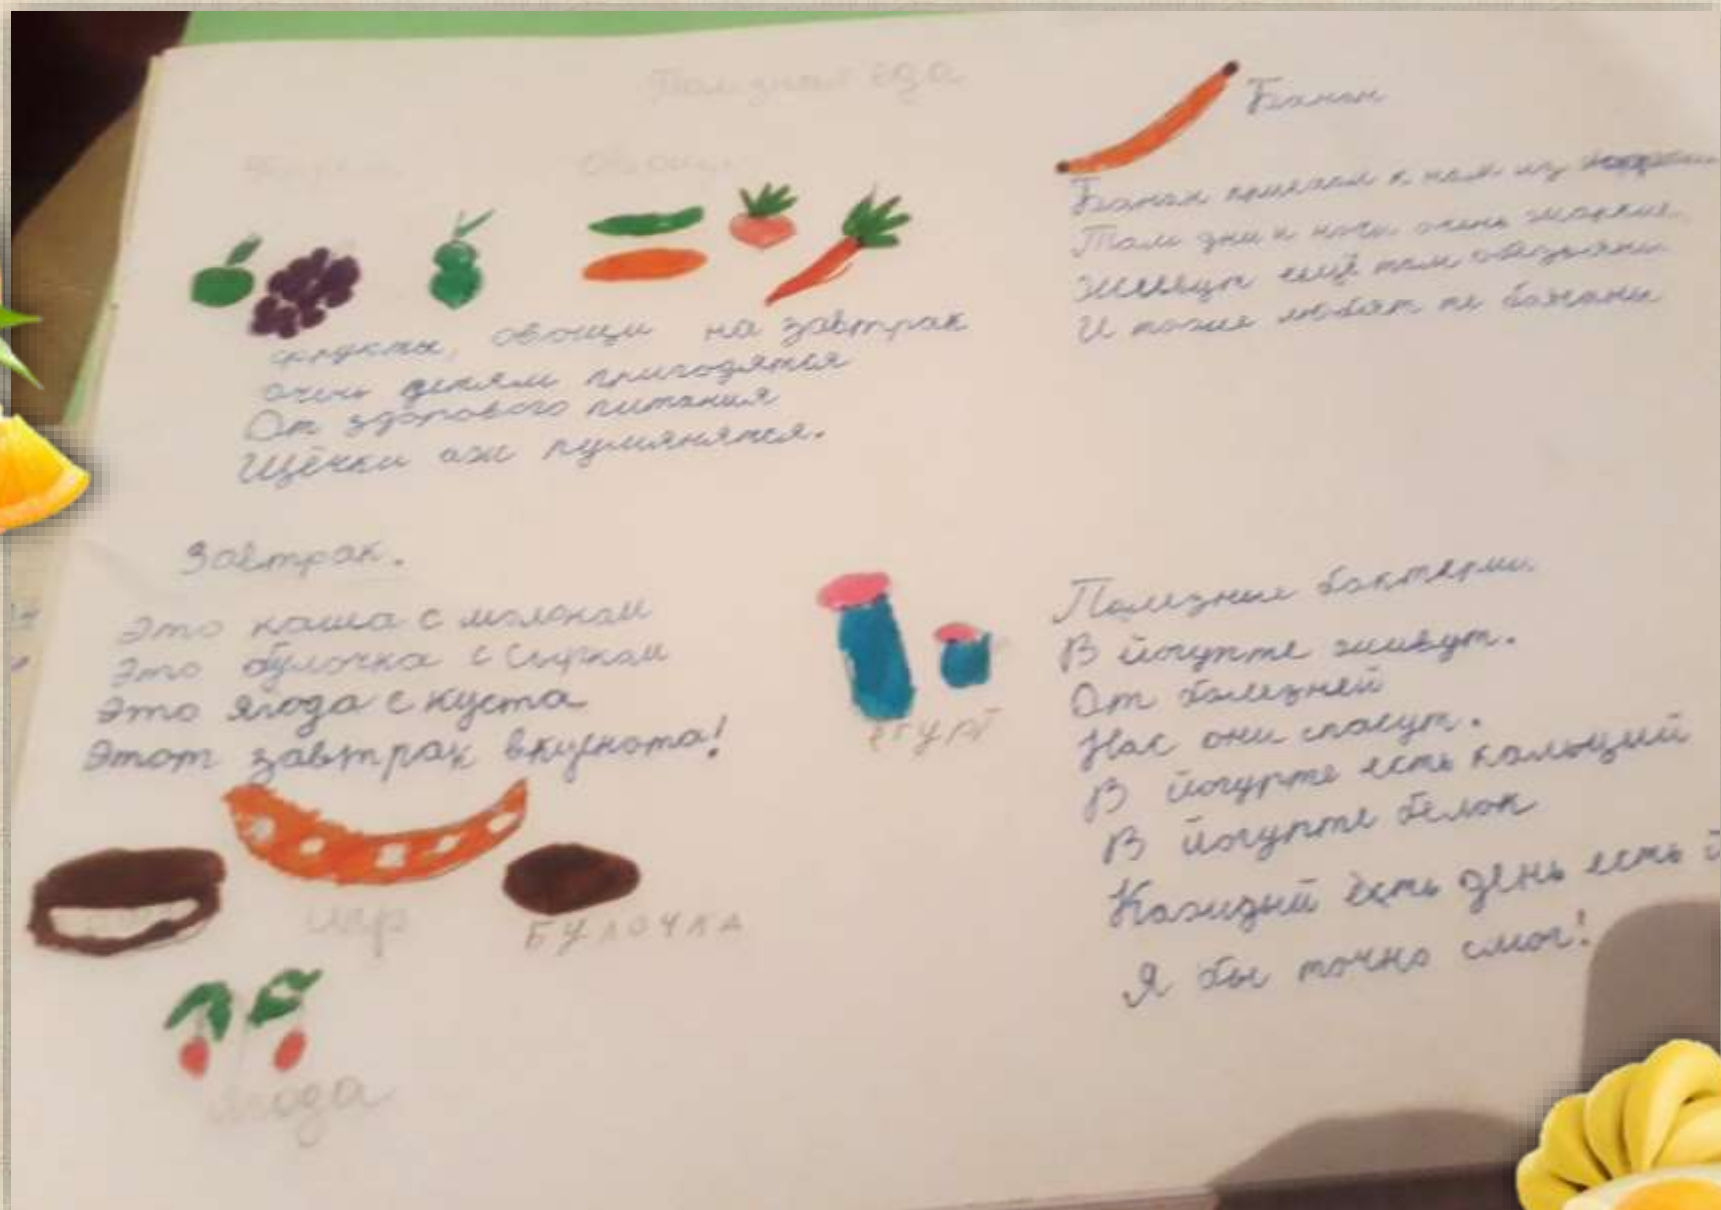 Полезная еда
Фрукты Овощи
фрукты, овощи на завтрак
очень детям пригодятся
От здорового питания
Щёчки аж румянятся.
Банан
Банан приехал к нам из
Там дни и ночи очень жаркие.
Живут ещё там обезьяны
И тоже любят те бананы
Завтрак.
Это каша с молоком
Это булочка с сырком
Это ягода с куста
Этот завтрак вкуснота!
сыр
БУЛОЧКА
ягода
Полезные бактерии
В йогурте живут.
От болезней
Нас они спасут.
В йогурте есть кальций
В йогурте белок
Каждый есть день есть й
Я бы точно смог!